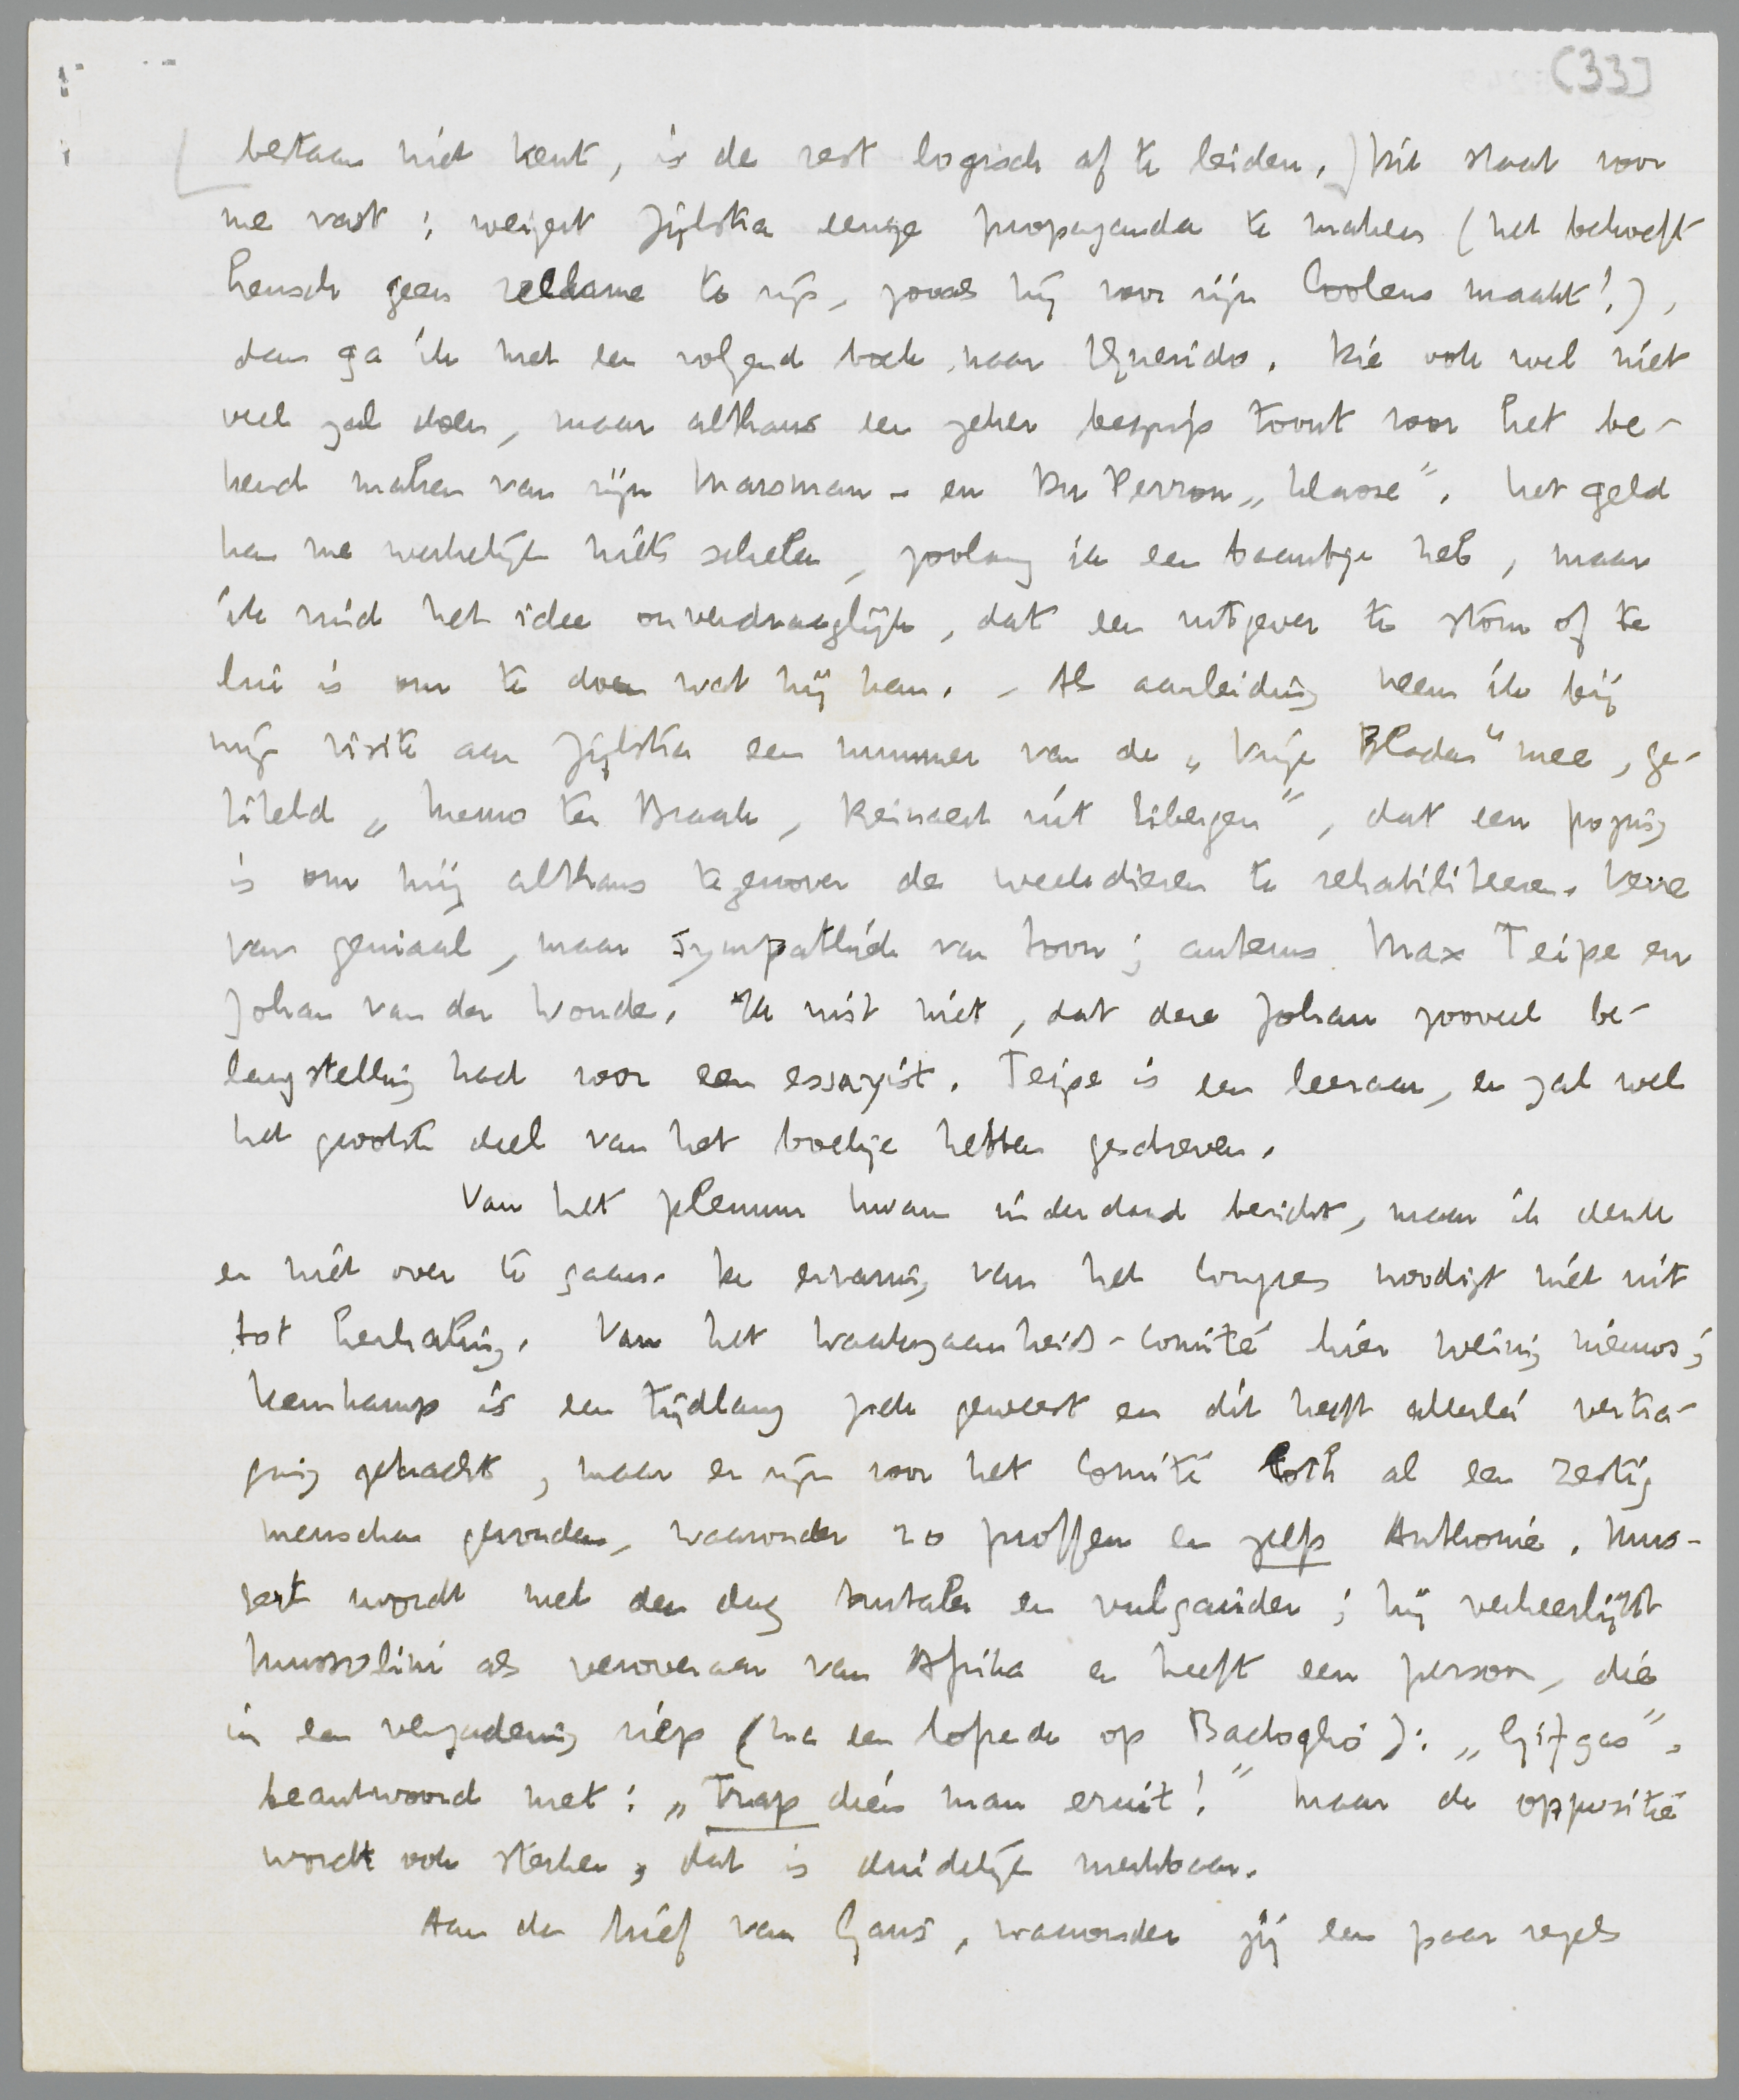 (33)
bestaan niet kent, is de rest logisch af te leiden.) Dit staat voor
me vast: weigert Zijlstra eenige propaganda te maken (het behoeft
heusch geen reclame te zijn, zooals hij voor zijn Coolens maakt!),
dan ga ik met een volgend boek naar Querido. Die ook wel niet
veel zal doen, maar althans een zeker begrip toont voor het be-
kend maken van zijn Marsman- en Du Perron „klasse”. Het geld
kan me werkelijk niets schelen, zoolang ik een baantje heb, maar
ik vind het idee onverdraaglijk, dat een uitgever te stom of te
lui is om te doen wat hij kan. - Als aanleiding neem ik bij
mijn visite aan Zijlstra een nummer van de „Vrije Bladen” mee, ge-
titeld „Menno ter Braak, Reinaert uit Eibergen”, dat een poging
is om mij althans tegenover de weekdieren te rehabiliteeren. Verre
van geniaal, maar sympathiek van toon; auteurs Max Teipe en
Johan van der Woude. Ik wist niet, dat deze Johan zooveel be-
langstelling had voor een essayist. Teipe is een leeraar, en zal wel
het grootste deel van het boekje hebben geschreven.
Van het plenum kwam inderdaad bericht, maar ik denk
er niet over te gaan. De ervaring van het congres noodigt niet uit
tot herhaling. Van het Waakzaamheids-Comité hier weinig nieuws;
Kernkamp is een tijdlang ziek geweest en dit heeft allerlei vertra-
ging gebracht, maar er zijn voor het Comité toch al een zestig
menschen gevonden, waaronder 20 proffen en zelfs Anthonie. Mus-
sert wordt met den dag brutaler en vulgairder; hij verheerlijkt
Mussolini als veroveraar van Afrika en heeft een persoon, die
in een vergadering riep (na een lofrede op Badoglio): „Gifgas”,
beantwoord met: „Trap dien man eruit!” Maar de oppositie
wordt ook sterker, dat is duidelijk merkbaar.
Aan den brief van Gans, waaronder jij een paar regels